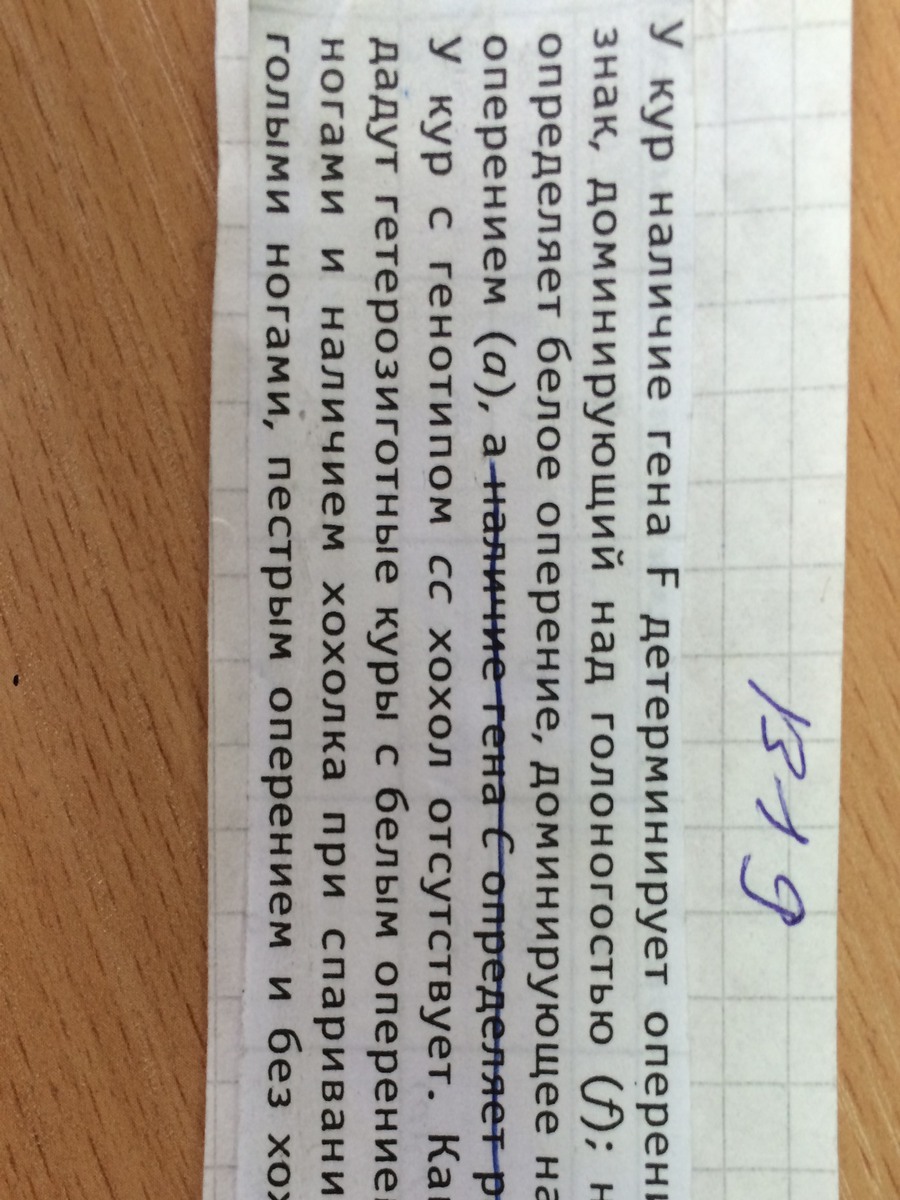 1319
У кур наличие гена F детерминирует
знак, доминирующий над голоногостью (f);
определяет белое оперение, доминирующее
оперением (а), а наличие гена С определяет
У кур с генотипом сс хохол отсутствует.
дадут гетерозиготные куры с белым
ногами и наличием хохолка при
голыми ногами, пестрым оперением и без